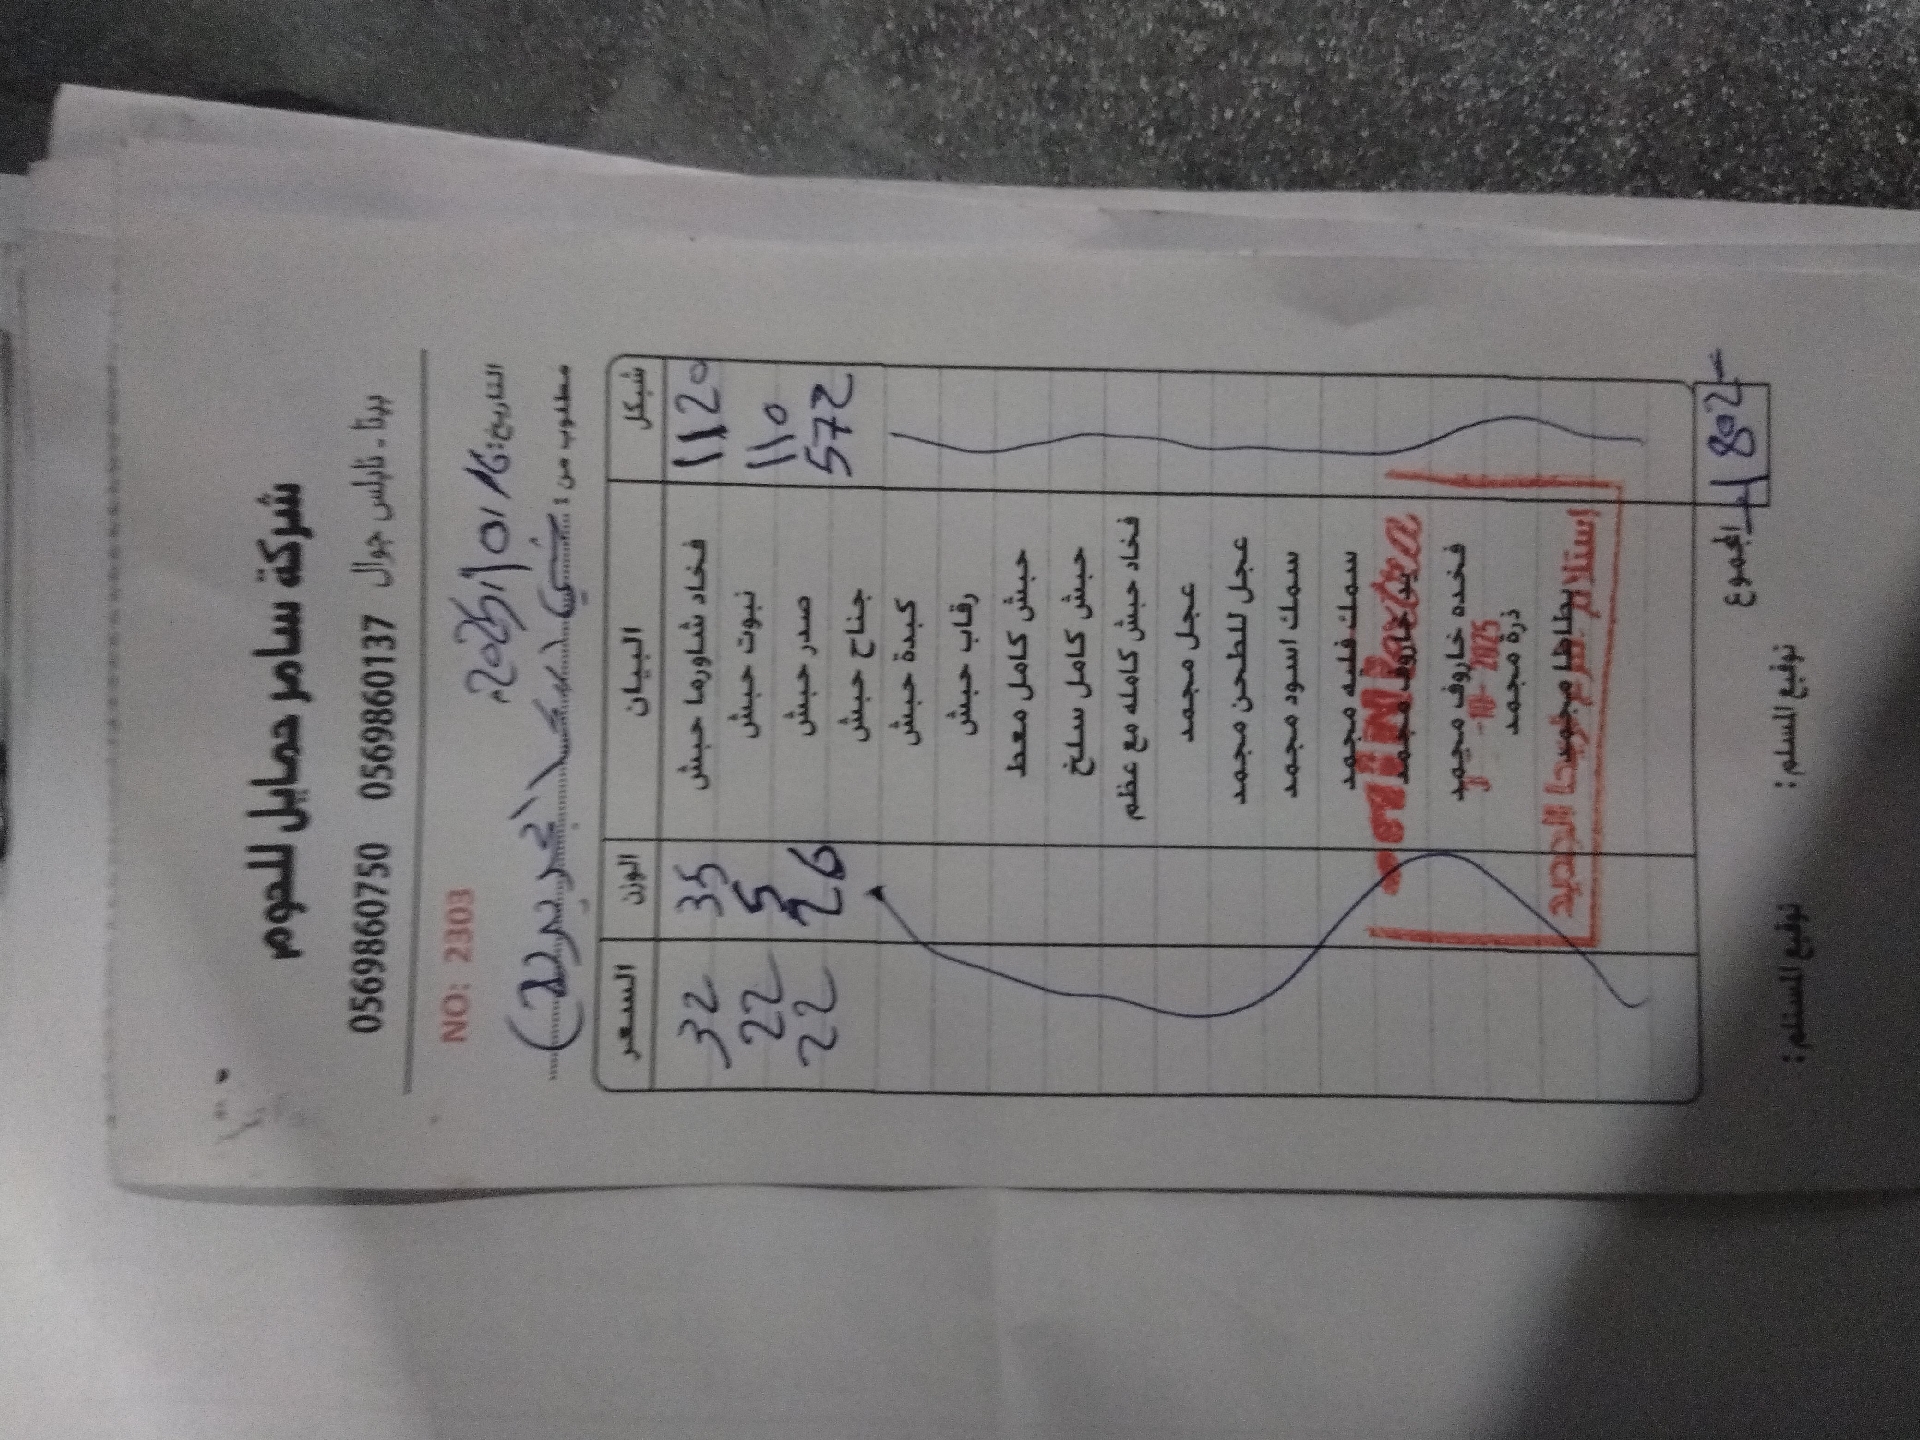 شركة سامر حمايل للحوم
بيتا - نابلس جوال 0569860137 0569860750
التاريخ: 16/10/2025
NO: 2303
مطلوب من:
شيكل البيان الوزن السعر
1120 فخاد شاورما حبش 35 32
110 نبوت حبش 5 22
572 صدر حبش 26 22
جناح حبش
كبدة حبش
رقاب حبش
حبش كامل معط
حبش كامل سلخ
فخاد حبش كامله مع عظم
عجل مجمد
عجل للطحن مجمد
سمك اسود مجمد
سمك فليه مجمد
خاروف مجمد
فخده خاروف مجمد
-10- 2025
ذرة مجمد
بطاطا مجمد
استلام
المجموع 1802
توقيع المسلم:
توقيع المستلم: